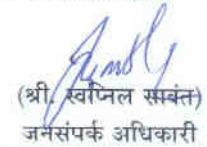 (श्री. स्वप्निल सावंत)
जनसंपर्क अधिकारी